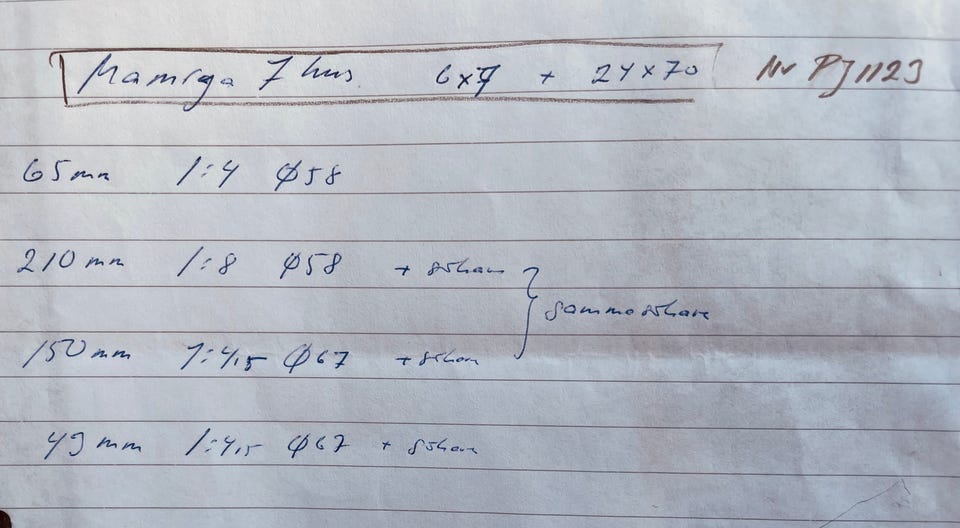 Mamiya 7 hus 6x7 + 24x70 Nr PJ1123
65mm 1:4 Ø58
210mm 1:8 Ø58 + sökare
samma sökare
150mm 1:4,5 Ø67 + sökare
43mm 1:4,5 Ø67 + sökare